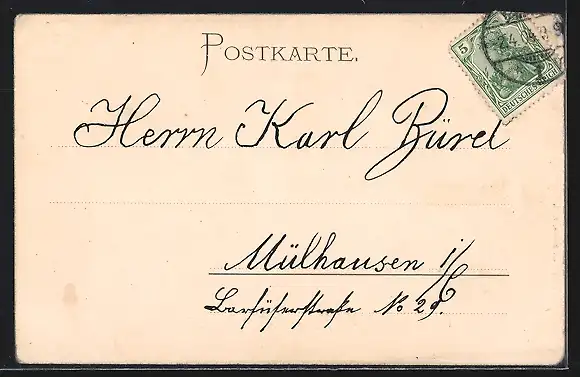 POSTKARTE.
5
DEUTSCHES REICH
Herrn Karl Bürel
Mülhausen i/E
Barfüserstraße No 29.